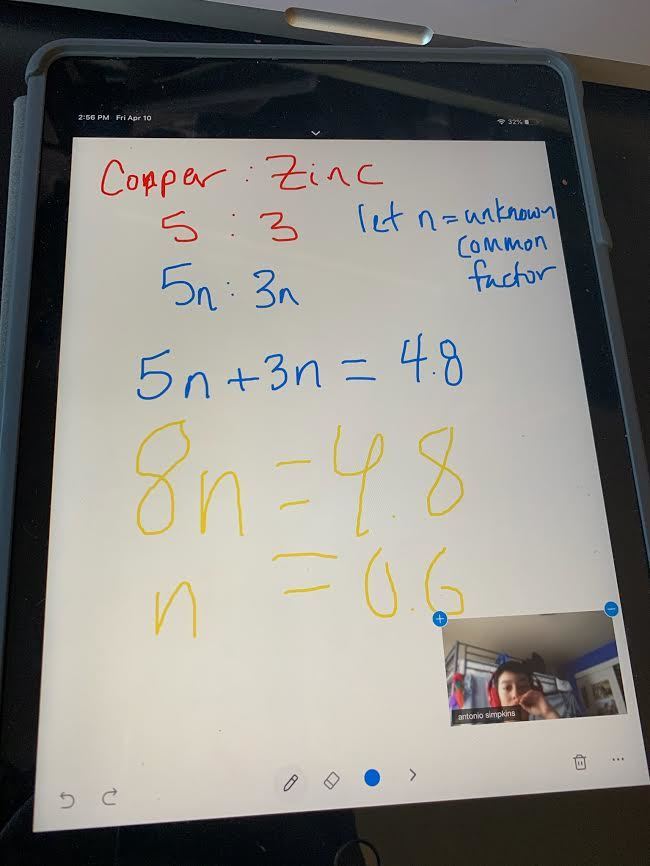 2:56 PM Fri Apr 10 32%
Copper : Zinc
5 : 3 let n = unknown
common
5n : 3n factor
5n + 3n = 4.8
8n = 4.8
n = 0.6
antonio simpkins